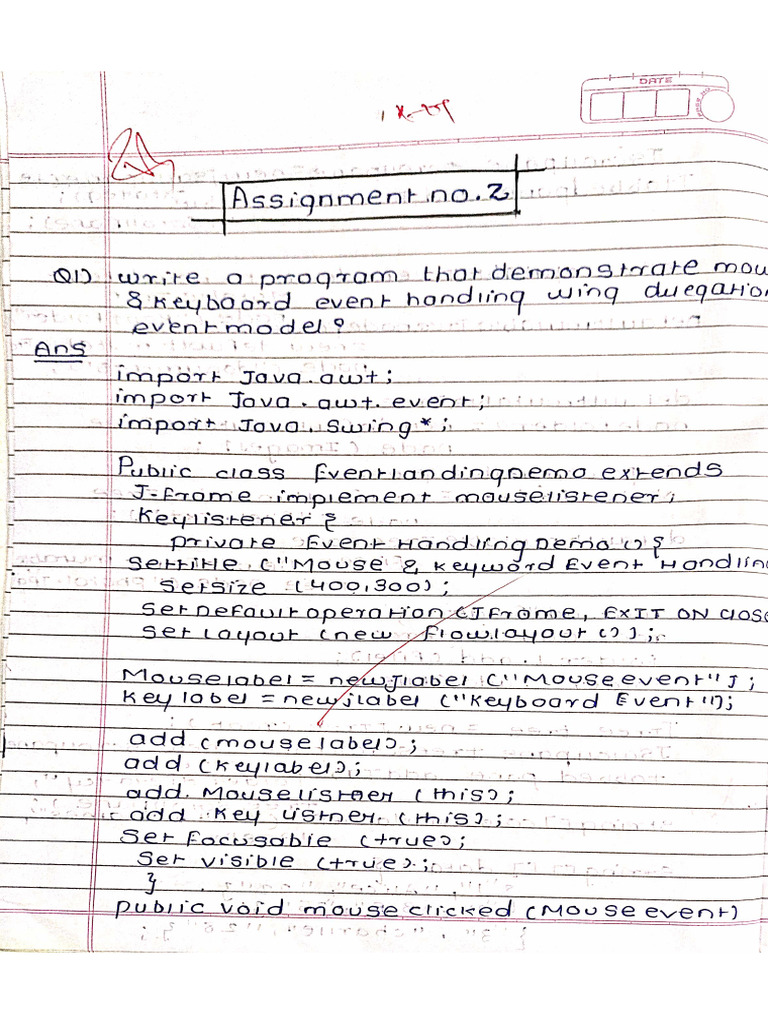 DATE
Assignment no. 2
Q1) write a program that demonstrate mou
& Keyboard event handling using duegation
event model?
Ans
import Java.awt;
import Java.awt.event;
import Java.Swing*;
Public class EventlandingDemo extends
J-frame implement mouselistener,
Keylistener {
private Event HandlingDemo () {
Settitle ("Mouse & Keyword Event Handling
Setsize (400,300);
Set Default operation (JFrame, EXIT ON Close
Set Layout (new flowlayout ());
Mouselabel = newjlabel ("Mouse event");
Key label = newjlabel ("Keyboard Event");
add (mouselabel);
add (Keylabel);
add. Mouselistner (this);
add Key listner (this);
Set focusable (true);
Set visible (true);
}
public void mouse clicked (Mouse event)